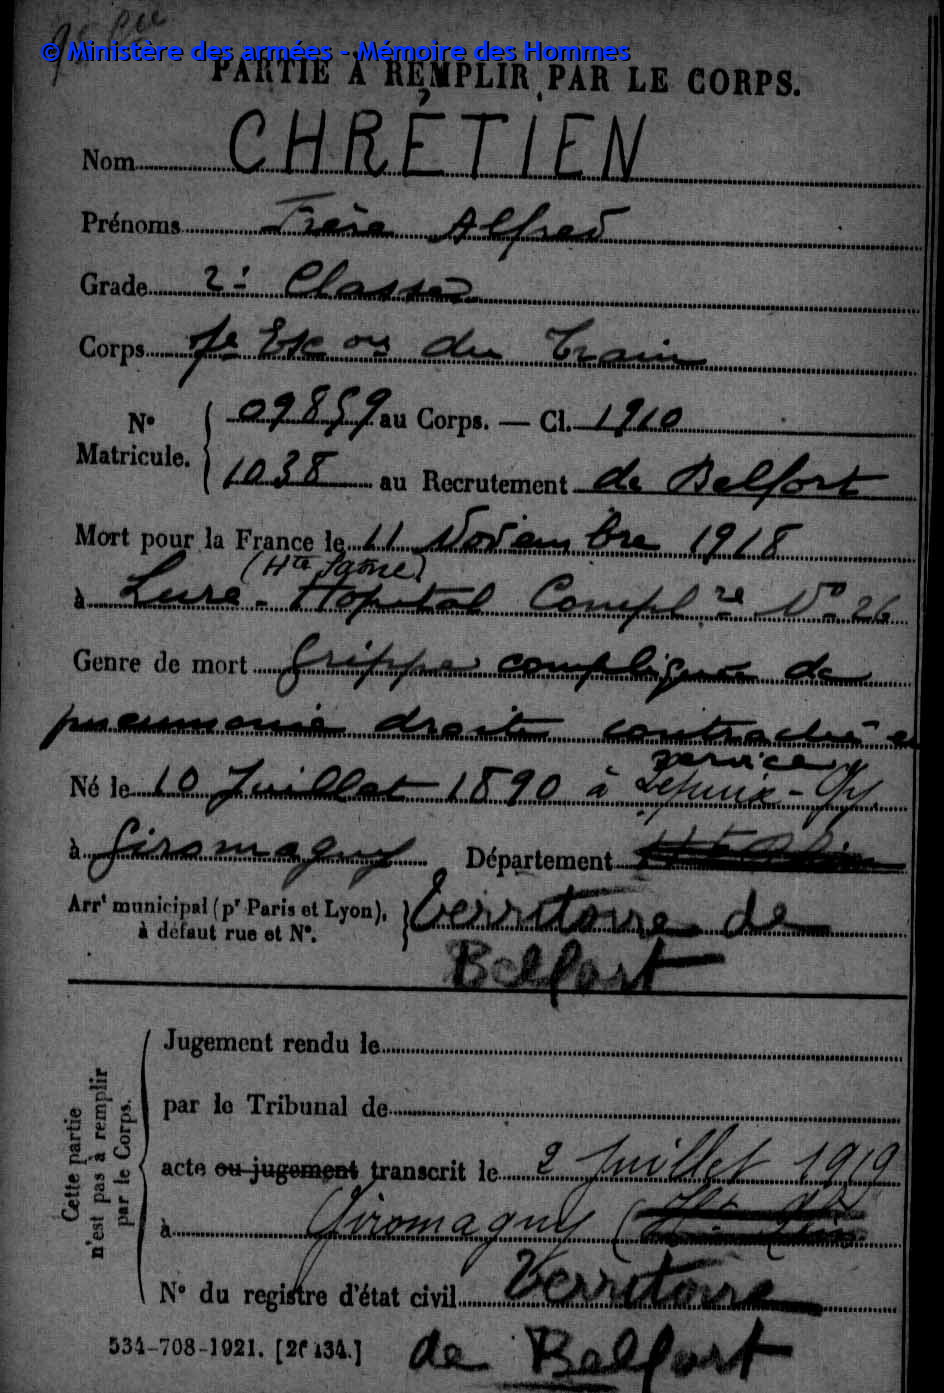 © Ministère des armées - Mémoire des Hommes
PARTIE À REMPLIR PAR LE CORPS.
Nom CHRÉTIEN
Prénoms Alfred
Grade 2e Classe
Corps 7e Esc on du Train
No Matricule. 09859 au Corps. — Cl. 1910
1038 au Recrutement de Belfort
Mort pour la France le 11 Novembre 1918
(Hte Saône)
à Lure - Hopital Compl re No 26
Genre de mort Grippe compliquée de
pneumonie droite contractée en
service
Né le 10 Juillet 1890 à Lepuix-Gy
à Giromagny Département
Arrt municipal (pr Paris et Lyon), à défaut rue et No. Territoire de
Belfort
Cette partie n'est pas à remplir par le Corps.
Jugement rendu le
par le Tribunal de
acte ou jugement transcrit le 2 Juillet 1919
à Giromagny
No du registre d'état civil Territoire
534-708-1921. [26434.] de Belfort